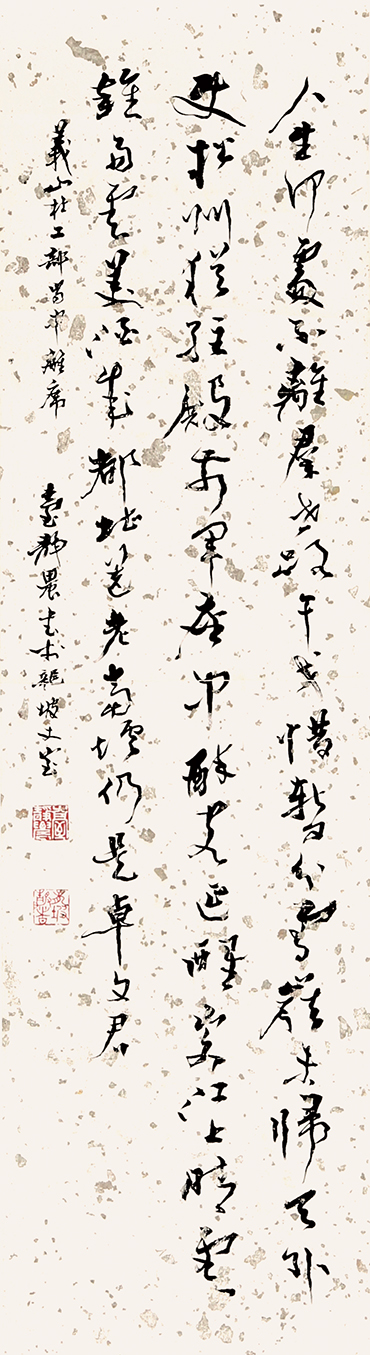 人生何處不離羣世路干戈惜暫分雪嶺未歸天外
使松州猶駐殿前軍座中醉客延醒客江上晴雲
雜雨雲美酒成都堪送老當壚仍是卓文君
義山杜工部蜀中離席 臺靜農書於龍坡丈室